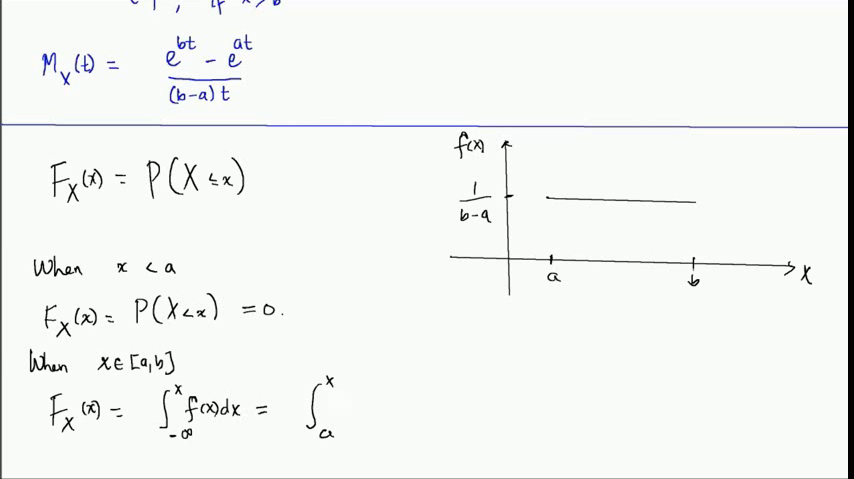 , if x > b
M_X(t) = (e^{bt} - e^{at}) / ((b-a) t)
F_X(x) = P(X ≤ x)
When x < a
F_X(x) = P(X < x) = 0.
When x ∈ [a, b]
F_X(x) = ∫_{-∞}^{x} f(x) dx = ∫_{a}^{x}
f(x)
1/(b-a)
a b x